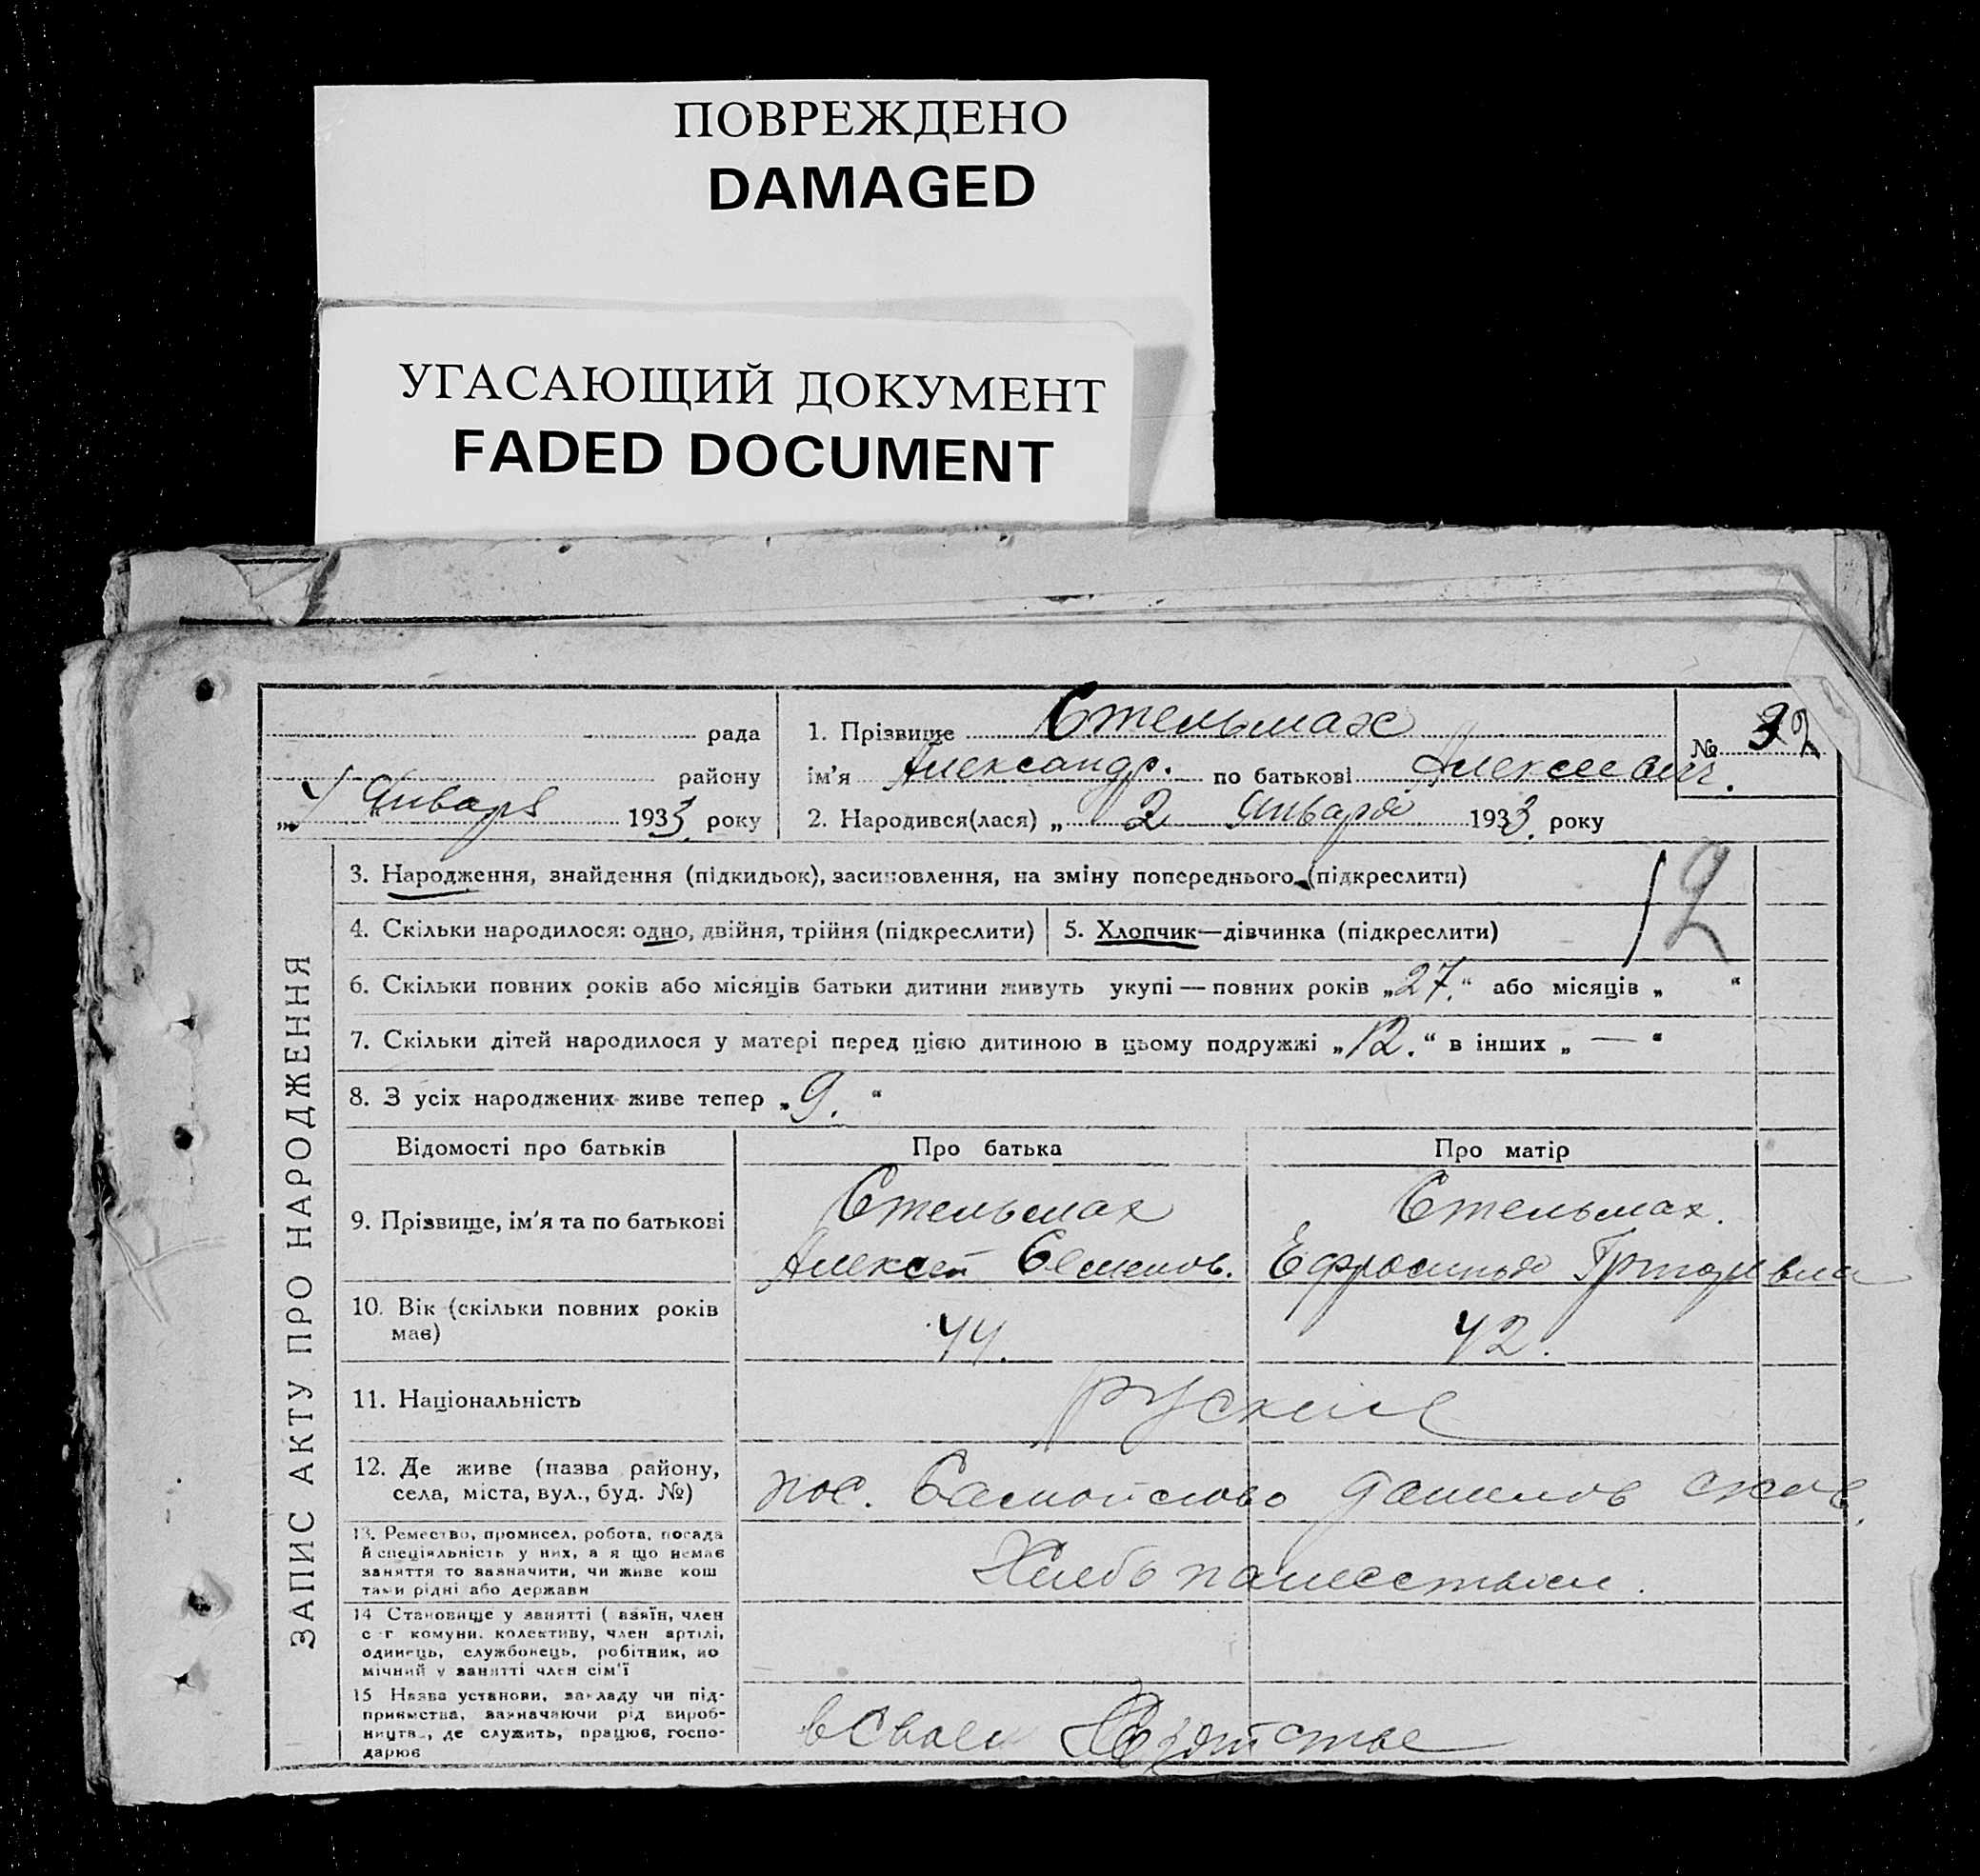 ПОВРЕЖДЕНО
DAMAGED
УГАСАЮЩИЙ ДОКУМЕНТ
FADED DOCUMENT
рада
району
„4 Января 1933 року
1. Прізвище Стельмах
ім'я Александр. по батькові Алексеевич.
2. Народився(лася) „ 2 Января 1933. року
№ 2
ЗАПИС АКТУ ПРО НАРОДЖЕННЯ
3. Народження, знайдення (підкидьок), засиновлення, на зміну попереднього (підкреслити)
4. Скільки народилося: одно, двійня, трійня (підкреслити)
5. Хлопчик—дівчинка (підкреслити)
6. Скільки повних років або місяців батьки дитини живуть укупі — повних років „27.“ або місяців „ “
7. Скільки дітей народилося у матері перед цією дитиною в цьому подружжі „12.“ в інших „ — “
8. З усіх народжених живе тепер „9. “
Відомості про батьків
Про батька
Про матір
9. Прізвище, ім'я та по батькові
Стельмах
Алексей Семенов.
Стельмах.
Ефросинья Григорьевна
10. Вік (скільки повних років
має)
44.
42.
11. Національність
руские
12. Де живе (назва району,
села, міста, вул., буд. №)
пос. Самойлово
13. Ремество, промисел, робота, посада
й спеціяльність у них, а я що немає
заняття то зазначити, чи живе кош
тами рідні або держави
Хлебопашеством.
14 Становище у занятті ( хазяїн, член
с-г комуни. колективу, член артілі,
одинець, службовець, робітник, по
мічний у занятті член сім'ї
15 Назва установи, закладу чи під-
приємства, зазначаючи рід вироб-
ництв., де служить, працює, госпо-
дарює
в своем Хозяйстве